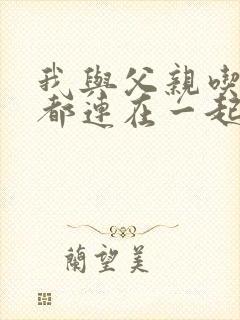 我與父親喫
都連在一起
蘭望美